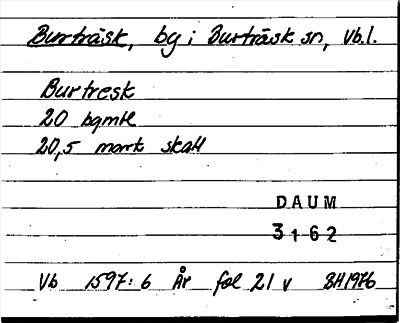 Burträsk, by i Burträsk sn, Vb.l.
Burtresk
20 bgmtl
20,5 mark skatt
DAUM
3162
Vb 1597:6 År fol 21 v BH1976